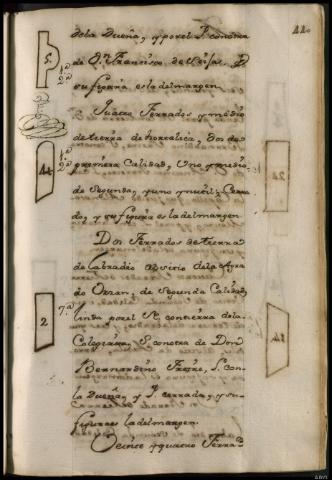 11.
de la Dueña, y por el P. con otra
de Dn. Francisco de Seijas. D
su figura es la del margen.
Quatro Ferrados y medio
de tierra de hortaliza, dos de
primera Calidad, Uno y medio
de Segunda, y uno ynutil; Cerra
do, y su figura es la del margen
Dos Ferrados de tierra
de Labradío al sitio de la Agra
de Orzan, de Segunda Calidad,
linda por el N. con tierra de la
Colegiata, S. con otra de Don
Bernardino Freire, L. con
la Dueña, y P. cerrada, y su
figura es la del margen.
Veinte y quatro Ferra-
5.
1ª
2ª
4 1/2
1ª
2ª
2
7ª